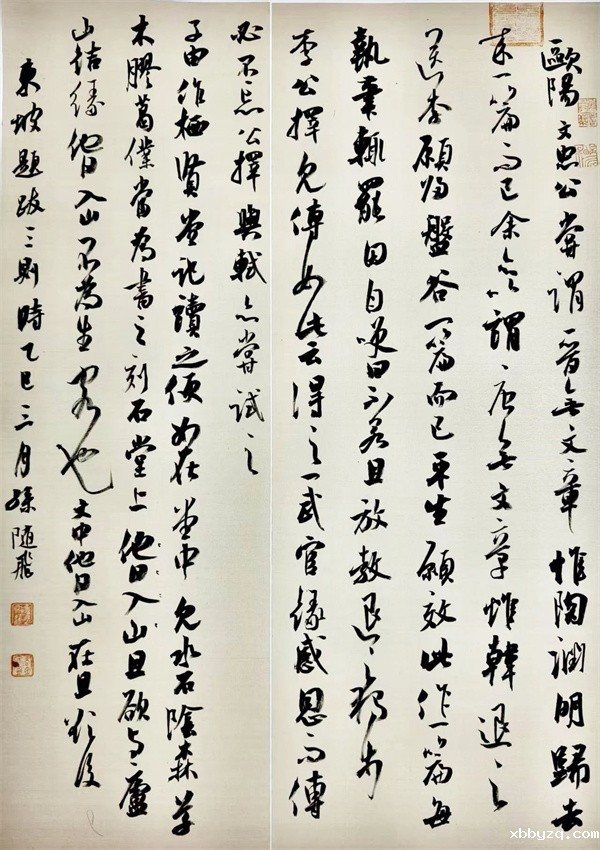 歐陽文忠公嘗謂晉无文章惟陶淵明歸去
来一篇而已余亦以謂唐无文章惟韓退之
送李願歸盤谷一篇而已平生願效此作一篇每
執筆輒罷因自笑曰不若且放教退之獨步
李公擇見傳如此云得之一武官緣感恩而傳
必不忘公擇與軾亦嘗試之
子由作栖賢堂記讀之便如在堂中見水石陰森草
木膠葛僕當為書之刻石堂上他日入山且欲与廬
山結緣他日入山不為生客也 文中他日入山在且欲後
東坡題跋三則時乙巳三月孫隨飛
xbbyzq.com